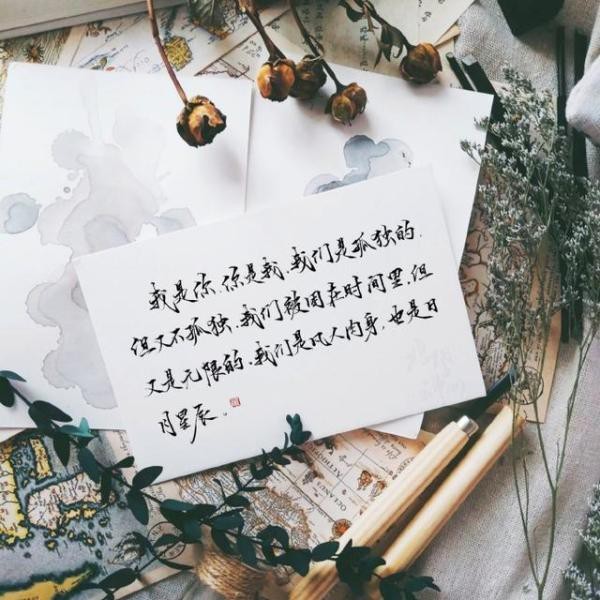 我是你,你是我,我们是孤独的,
但又不孤独,我们被困在时间里,但
又是无限的,我们是凡人肉身,也是日
月星辰。